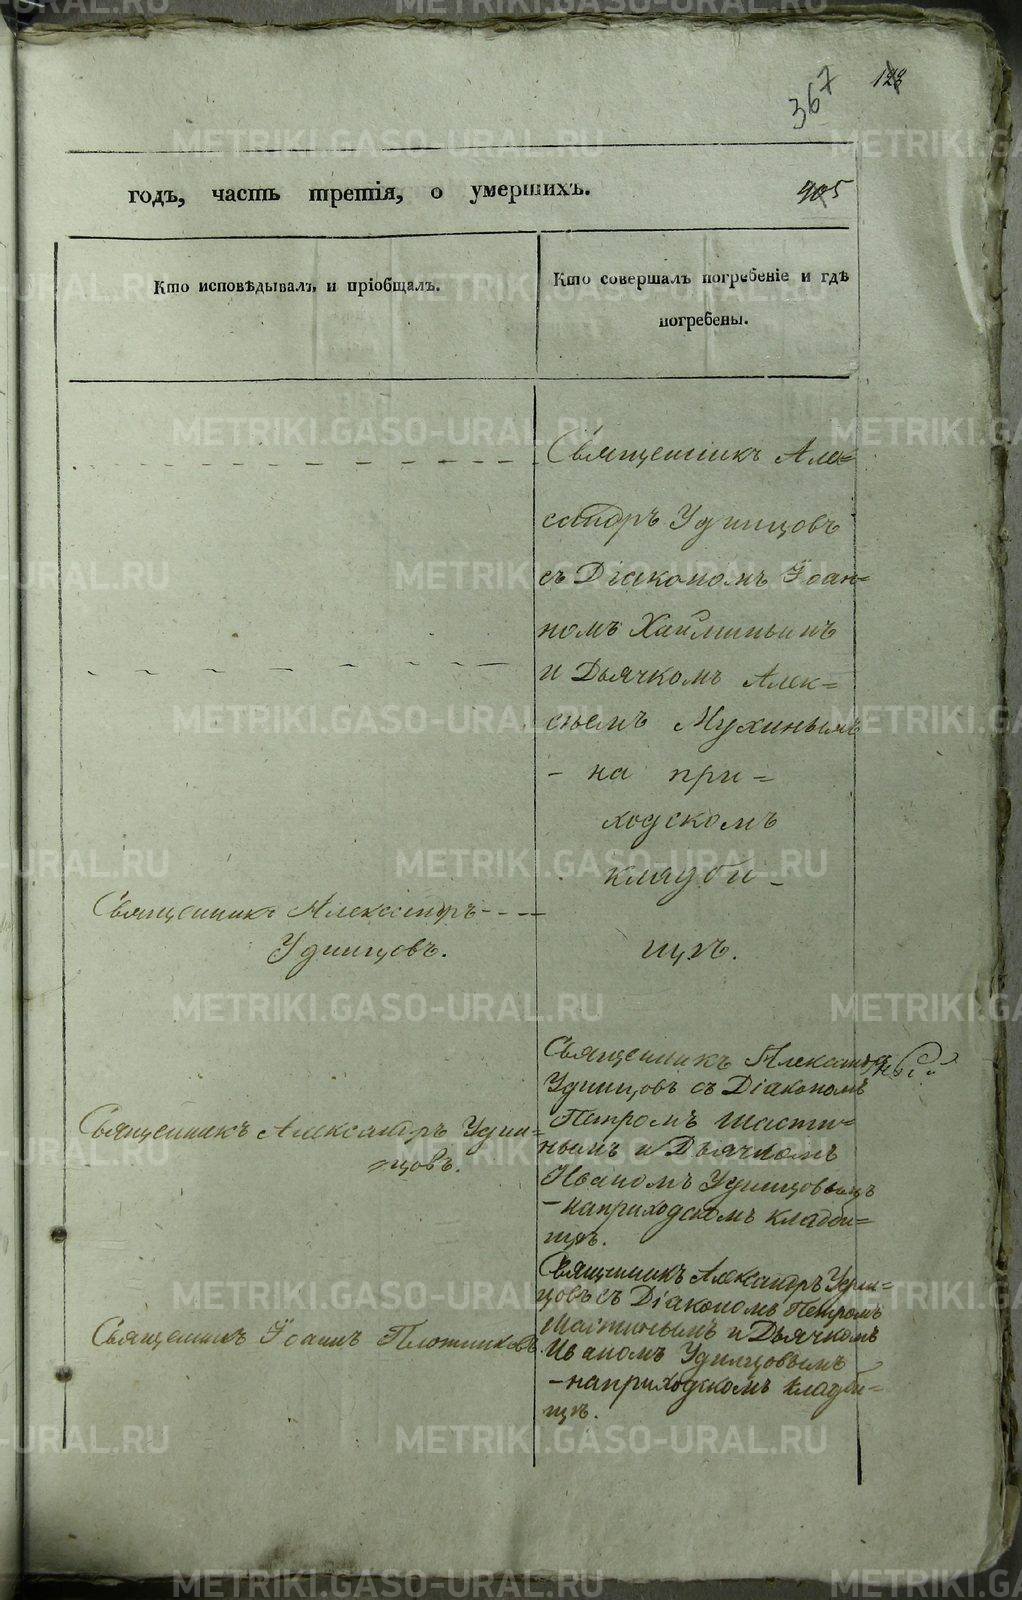 367
123
годъ, часть третія, о умершихъ.
405
Кто исповѣдывалъ и пріобщалъ.
Кто совершалъ погребеніе и гдѣ
погребены.
Священникъ Але=
ксандръ Удинцовъ
съ Діакономъ Іоан=
номъ
и Дьячкомъ Алек=
сѣемъ Мухинымъ
- на при=
ходскомъ
кладби-
щѣ.
Священникъ Александръ
Удинцовъ.
Священникъ Александръ
Удинцовъ съ Діакономъ
Петромъ Шасти-
нымъ и Дьячкомъ
Иваномъ Удинцовымъ
- на приходскомъ кладби=
щѣ.
Священникъ Александръ Удин=
цовъ.
Священникъ Александръ Удин=
цовъ съ Діакономъ Петромъ
Шастинымъ и Дьячкомъ
Иваномъ Удинцовымъ
- на приходскомъ кладби=
щѣ.
Священникъ Іоаннъ Плотниковъ
METRIKI.GASO-URAL.RU